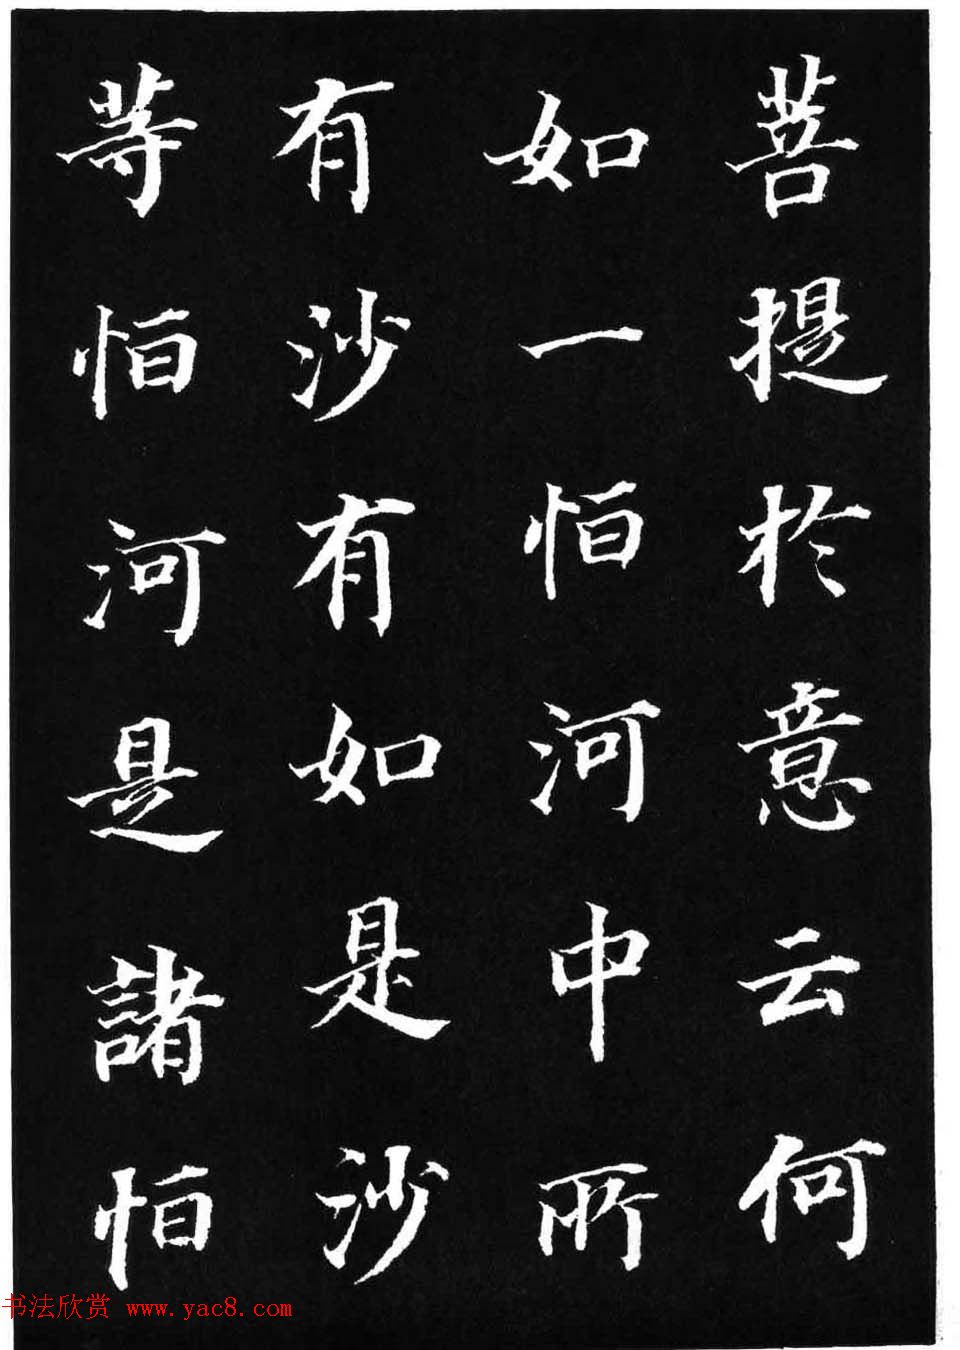 菩提於意云何
如一恒河中所
有沙有如是沙
等恒河是諸恒
书法欣赏 www.yac8.com